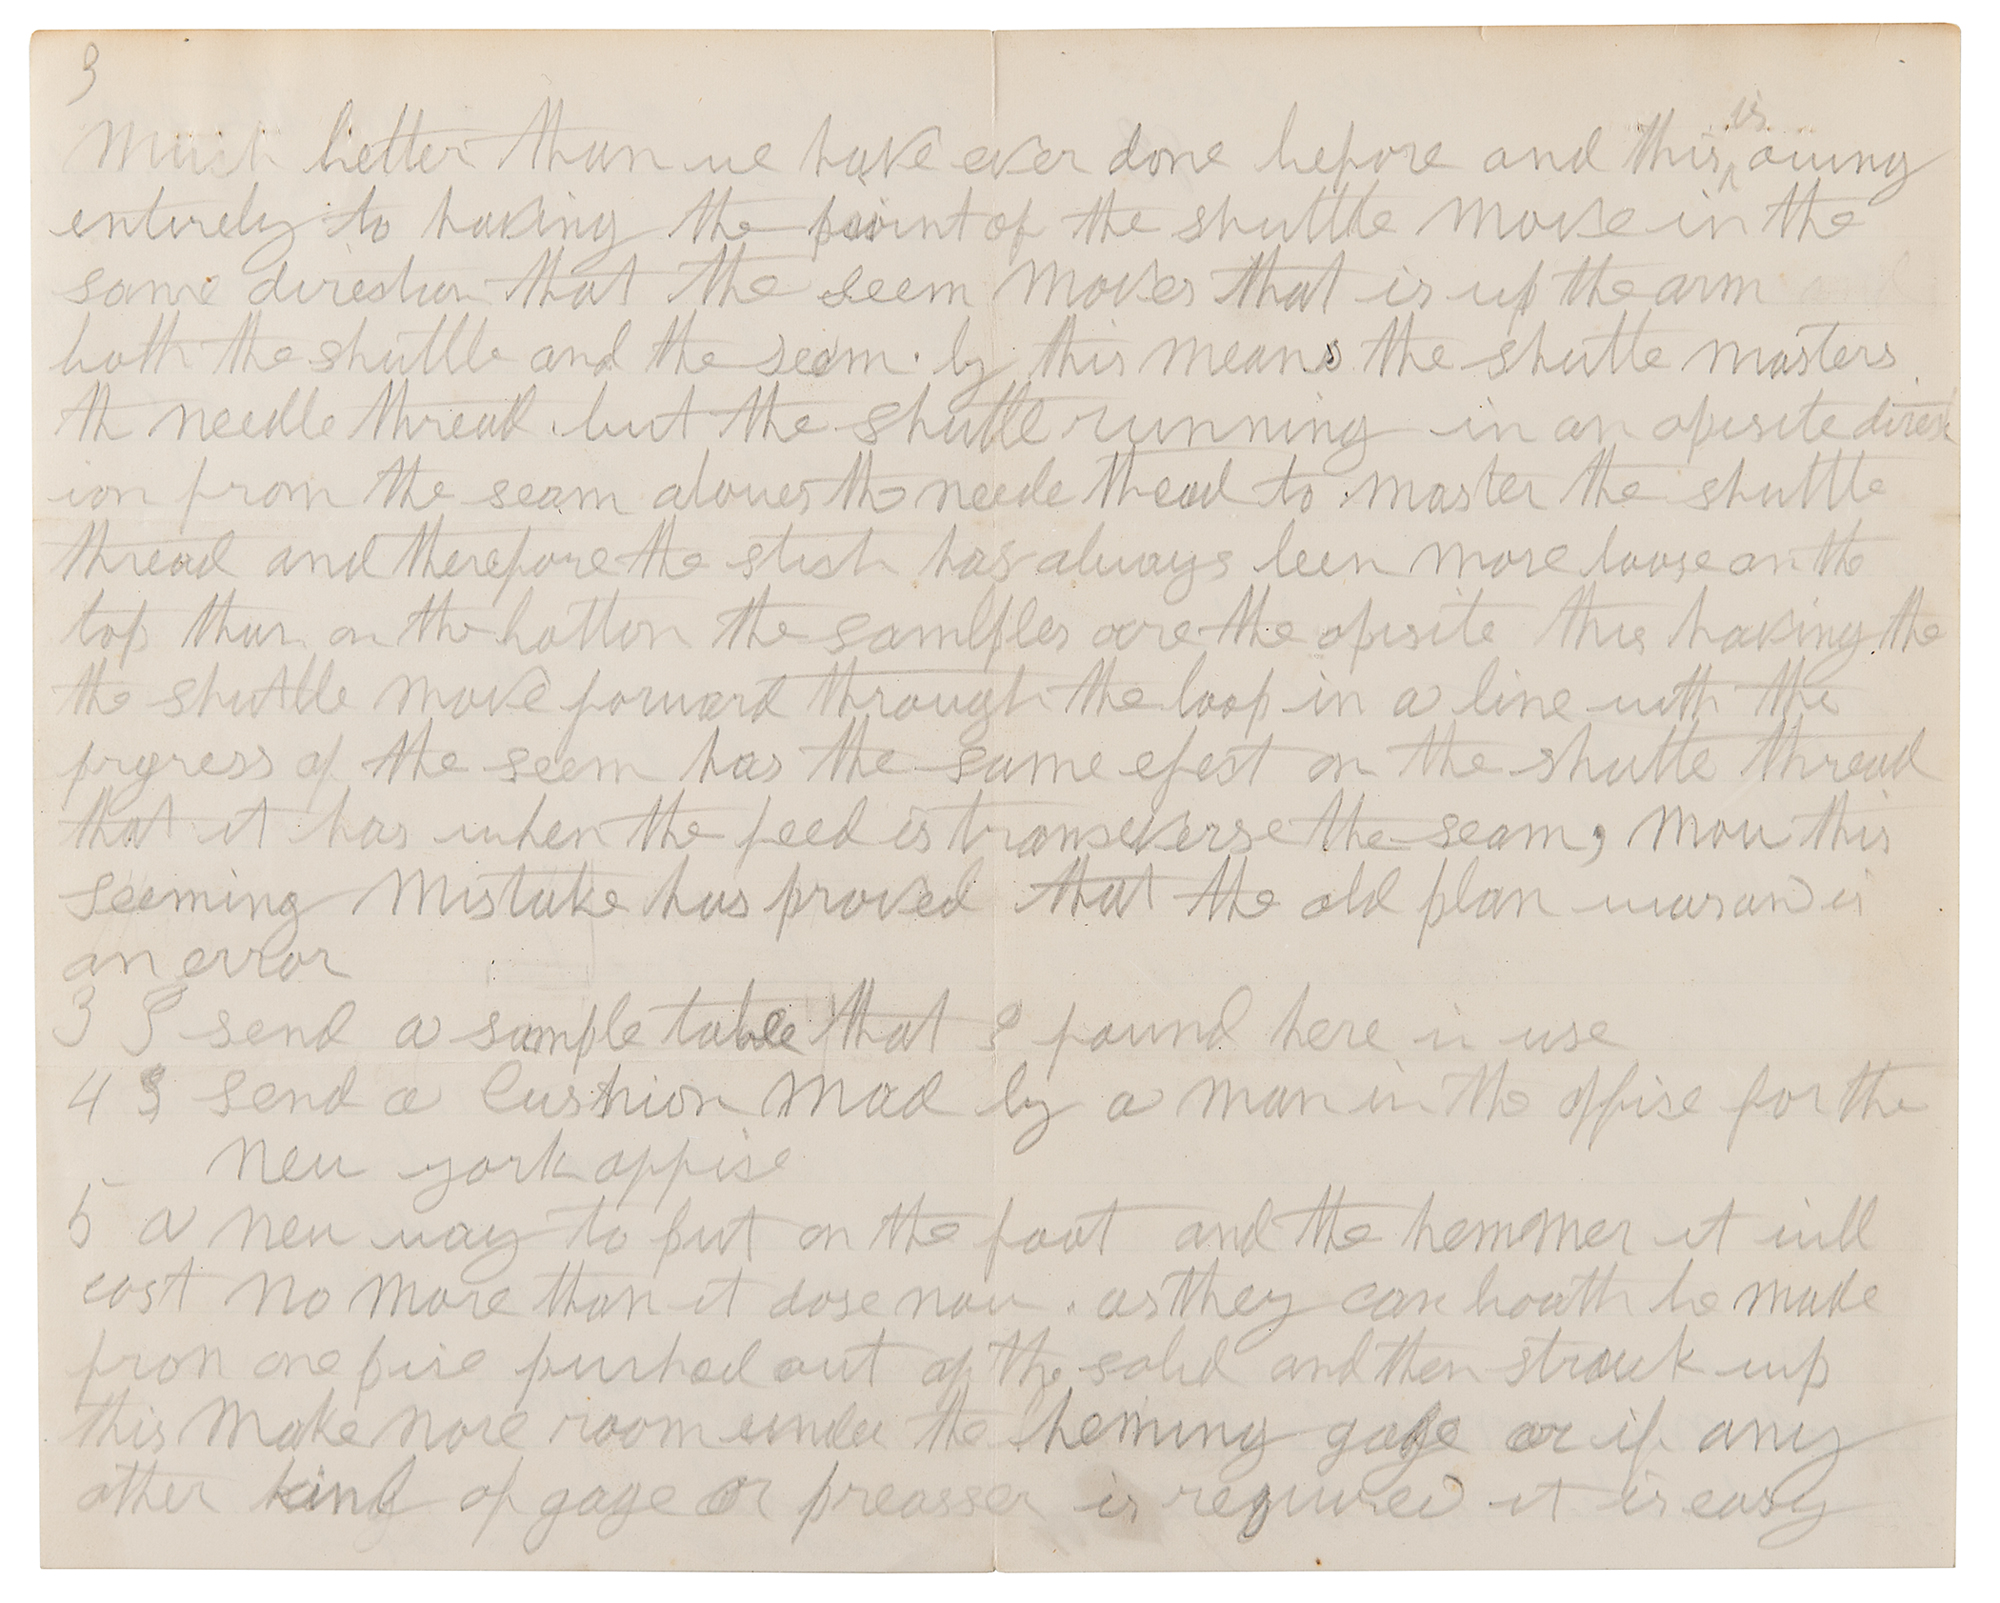 3
Much better than we have ever done before and this is owing
entirely to having the point of the shuttle move in the
same direction that the seem moves that is up the arm and
both the shuttle and the seem. by this means the shutle masters
th needle thread. but the shutle running in an opisite direct
ion from the seam alowes the neede thead to master the shuttle
thread and therefore the stich has always been more loose on the
top than on the botton the samlples are the opisite this having the
the shuttle move forward through the loop in a line with the
prgress of the seem has the same efect on the shutle thread
that it has when the feed is transeverse the seam, Now this
seeming Mistake has proved that the old plan was an is
an error
3 I send a sample table that I found here in use
4 I send a Cushion mad by a man in the offise for the
New york offise
5 a new way to put on the foot and the hemmer it will
cost no more than it dose now. as they can boath be made
from one pise pushed out of the solid and then struck up
this make more room under the heming gage or if any
other kind of gage or preasser is required it is easy